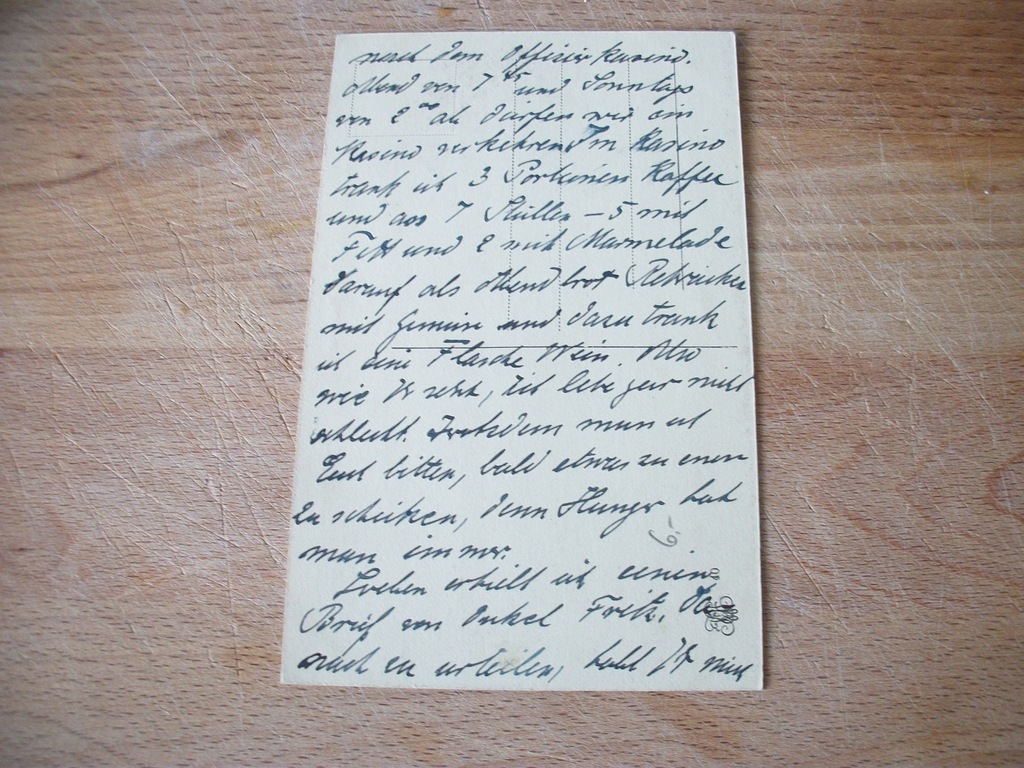 nach dem Offizierkasino.
Abend von 7 15 und Sonntags
von 2 00 ab dürfen wir im
Kasino verkehren Im Kasino
trank ich 3 Portionen Kaffee
und ass 7 Stullen – 5 mit
Fett und 2 mit Marmelade
darauf als Abendbrot Rehrücken
mit Gemüse und dazu trank
ich eine Flasche Wein. Also
wie Ihr seht, ich lebe gar nicht
schlecht. Trotzdem muss ich
Euch bitten, bald etwas zu essen
zu schicken, denn Hunger hat
man immer.
6.-
Soeben erhielt ich einen
Brief von Onkel Fritz. Da
nach zu urteilen, habt Ihr mich